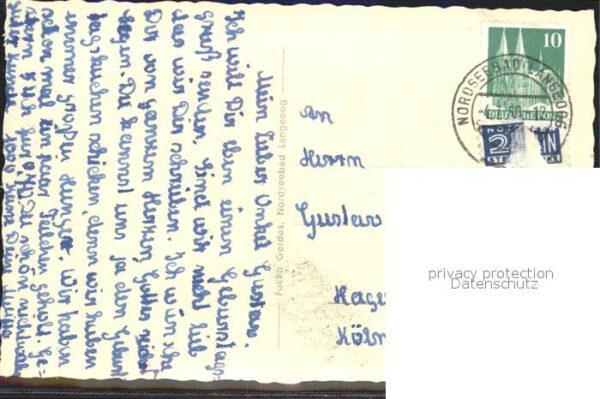 Mein lieber Onkel Gustav.
Ich will Dir eben einen Geburtstags-
gruß senden. Sind wir nicht lieb
das wir Dir schreiben. Ich wünsche
Dir von ganzem Herzen, Gottes reichst
Segen. Du kannst uns ja den Geburt
tagskuchen schicken, denn wir haben
immer großen Hunger. Wir haben
schon mal ein paar Teilchen geholt. Ge-
schön nicht
Fokko Gerdes, Nordseebad Langeoog
An
Herrn
Gustav
Hage
Köln
10
DEUTSCHE POST
NORDSEEBAD LANGEOOG
NO
2
IN
privacy protection
Datenschutz